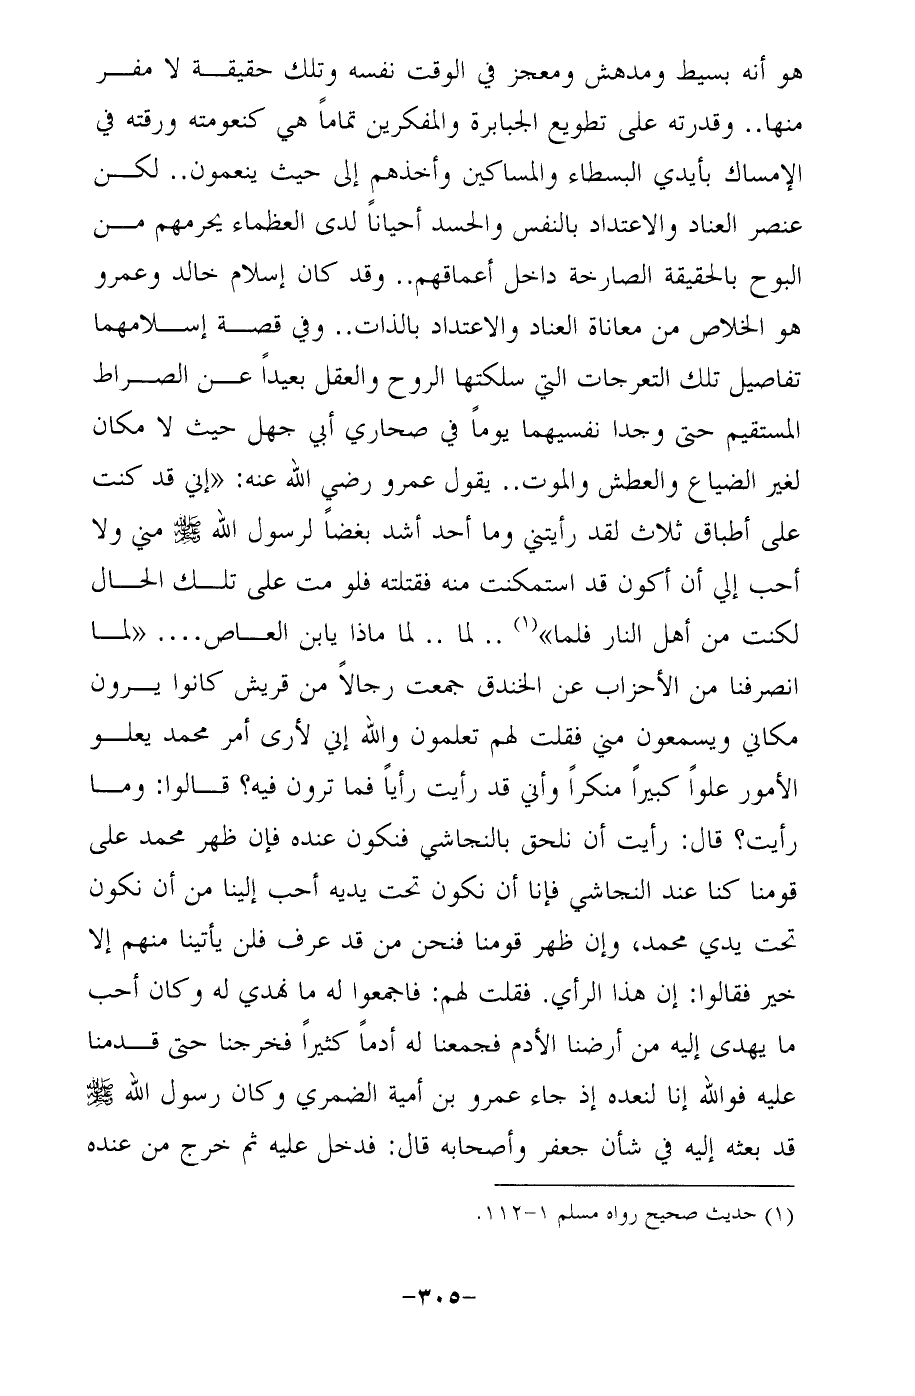 هو أنه بسيط ومدهش ومعجز في الوقت نفسه وتلك حقيقة لا مفر
منها.. وقدرته على تطويع الجبابرة والمفكرين تماماً هي كنعومته ورقته في
الإمساك بأيدي البسطاء والمساكين وأخذهم إلى حيث ينعمون.. لكن
عنصر العناد والاعتداد بالنفس والحسد أحياناً لدى العظماء يحرمهم من
البوح بالحقيقة الصارخة داخل أعماقهم.. وقد كان إسلام خالد وعمرو
هو الخلاص من معاناة العناد والاعتداد بالذات.. وفي قصة إسلامهما
تفاصيل تلك التعرجات التي سلكتها الروح والعقل بعيداً عن الصراط
المستقيم حتى وجدا نفسيهما يوماً في صحاري أبي جهل حيث لا مكان
لغير الضياع والعطش والموت.. يقول عمرو رضي الله عنه: «إني قد كنت
على أطباق ثلاث لقد رأيتني وما أحد أشد بغضاً لرسول الله ﷺ مني ولا
أحب إلي أن أكون قد استمكنت منه فقتلته فلو مت على تلك الحال
لكنت من أهل النار فلما»(١) .. لما .. لما ماذا يابن العاص.... «لما
انصرفنا من الأحزاب عن الخندق جمعت رجالاً من قريش كانوا يرون
مكاني ويسمعون مني فقلت لهم تعلمون والله إني لأرى أمر محمد يعلو
الأمور علواً كبيراً منكراً وأني قد رأيت رأياً فما ترون فيه؟ قالوا: وما
رأيت؟ قال: رأيت أن نلحق بالنجاشي فنكون عنده فإن ظهر محمد على
قومنا كنا عند النجاشي فإنا أن نكون تحت يديه أحب إلينا من أن نكون
تحت يدي محمد، وإن ظهر قومنا فنحن من قد عرف فلن يأتينا منهم إلا
خير فقالوا: إن هذا الرأي. فقلت لهم: فاجمعوا له ما نهدي له وكان أحب
ما يهدى إليه من أرضنا الأدم فجمعنا له أدماً كثيراً فخرجنا حتى قدمنا
عليه فوالله إنا لنعده إذ جاء عمرو بن أمية الضمري وكان رسول الله ﷺ
قد بعثه إليه في شأن جعفر وأصحابه قال: فدخل عليه ثم خرج من عنده
(١) حديث صحيح رواه مسلم ١-١١٢.
-٣٠٥-